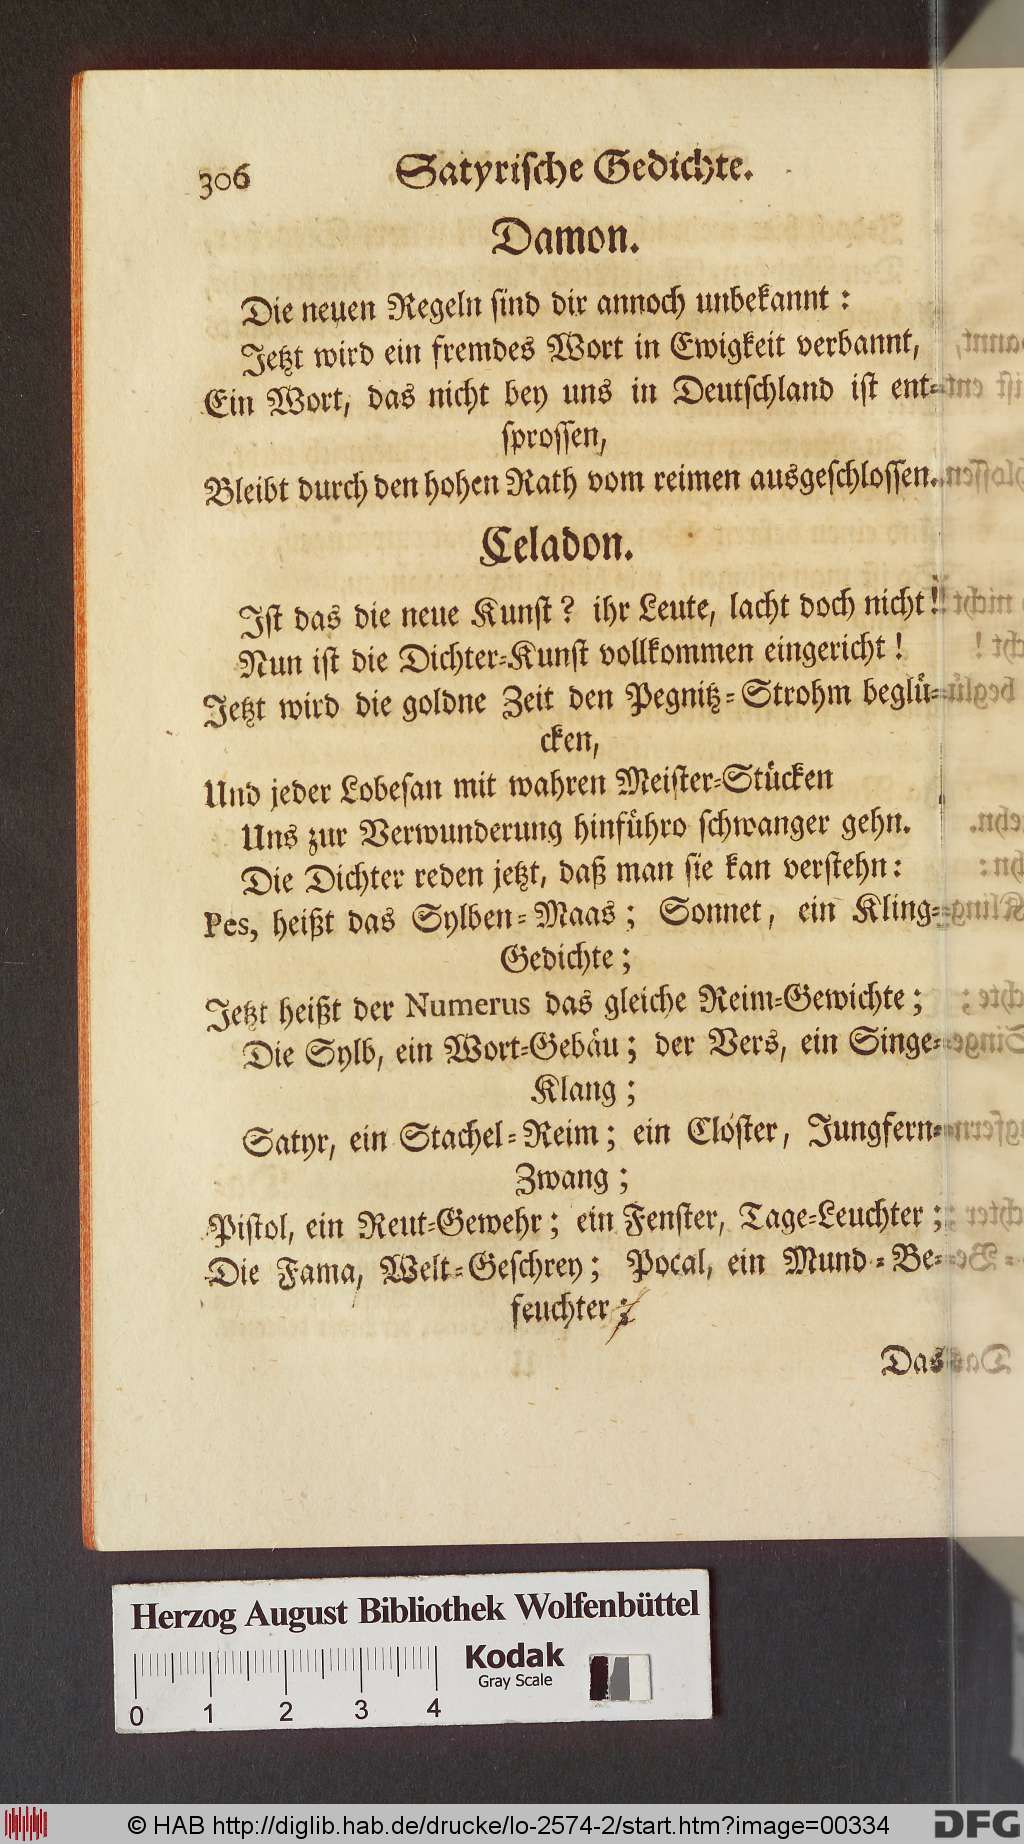 306 Satyrische Gedichte.
Damon.
Die neuen Regeln sind dir annoch unbekannt :
Jetzt wird ein fremdes Wort in Ewigkeit verbannt,
Ein Wort, das nicht bey uns in Deutschland ist ent-
sprossen,
Bleibt durch den hohen Rath vom reimen ausgeschlossen.
Celadon.
Ist das die neue Kunst ? ihr Leute, lacht doch nicht !
Nun ist die Dichter-Kunst vollkommen eingericht !
Jetzt wird die goldne Zeit den Pegnitz-Strohm beglü-
cken,
Und jeder Lobesan mit wahren Meister-Stücken
Uns zur Verwunderung hinführo schwanger gehn.
Die Dichter reden jetzt, daß man sie kan verstehn :
Pes, heißt das Sylben-Maas ; Sonnet, ein Kling-
Gedichte ;
Jetzt heißt der Numerus das gleiche Reim-Gewichte ;
Die Sylb, ein Wort-Gebäu ; der Vers, ein Singe-
Klang ;
Satyr, ein Stachel-Reim ; ein Closter, Jungfern-
Zwang ;
Pistol, ein Reut-Gewehr ; ein Fenster, Tage-Leuchter ;
Die Fama, Welt-Geschrey ; Pocal, ein Mund-Be-
feuchter ;
Das
Herzog August Bibliothek Wolfenbüttel
Kodak
Gray Scale
0 1 2 3 4
© HAB http://diglib.hab.de/drucke/lo-2574-2/start.htm?image=00334
DFG